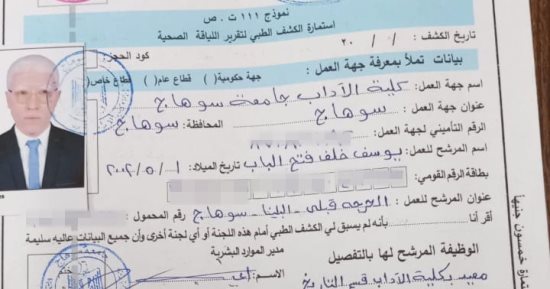 نموذج ١١١ ت . ص
استمارة الكشف الطبي لتقرير اللياقة الصحية
تاريخ الكشف / / ٢٠ كود الحجز
بيانات تملأ بمعرفة جهة العمل : جهة حكومية ( ) قطاع عام ( ) قطاع خاص ( )
اسم جهة العمل : كلية الآداب جامعة سوهاج
عنوان جهة العمل : سوهاج المحافظة : سوهاج
الرقم التأميني لجهة العمل :
اسم المرشح للعمل : يوسف خلف فتح الباب تاريخ الميلاد : ١ / ٥ / ٢٠٠٢
بطاقة الرقم القومي :
عنوان المرشح للعمل : قبلى - البلينا - سوهاج رقم المحمول :
أقر أنا بأنه لم يسبق لي الكشف الطبي أمام هذه اللجنة أو أي لجنة أخرى وأن جميع البيانات عاليه سليمة
الوظيفة المرشح لها بالتفصيل مدير الموارد البشرية
معيد بكلية الآداب قسم التاريخ الاسم :
استمارة خمسون جنيها